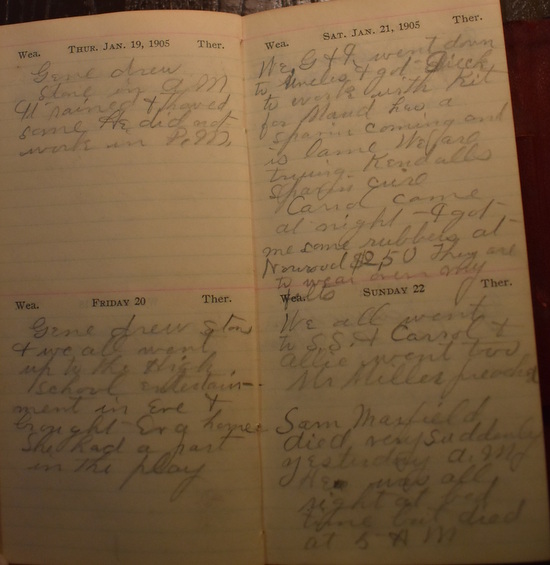 Wea. THUR. JAN. 19, 1905 Ther.
Gene drew
stone in A M
It rained & thawed
some He did not
work in P.M.
Wea. FRIDAY 20 Ther.
Gene drew stone
& we all went
up to the High
School entertain-
ment in Eve &
brought Eva home
She had a part
in the play
Wea. SAT. JAN. 21, 1905 Ther.
We, G & I went down
to Uncles & got
to work with Kit
for Maud has a
spavin coming and
is lame We are
trying Kendalls
Spavin cure
Carrol came
at night - I got
me some rubbers at
Norwood $2.50 They are
to wear over my
felts
Wea. SUNDAY 22 Ther.
We all went
to S.S. & Carrol &
Allie went too
Mr Miller preached
Sam
died very suddenly
yesterday A.M.
He was all
right at bed
time but died
at 5 A M